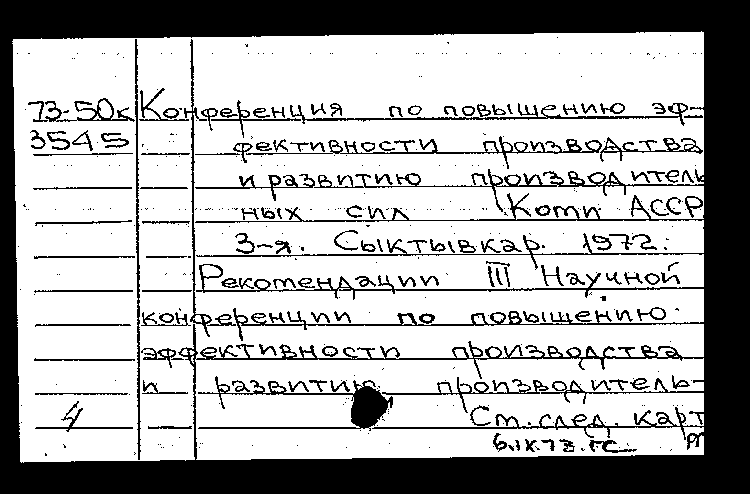 73-50к Конференция по повышению эф-
3545 фективности производства
и развитию производитель
ных сил Коми АССР
3-я. Сыктывкар. 1972.
Рекомендации III Научной
конференции по повышению
эффективности производства
и развитию производитель-
4 Ст. след. карт
6.IX.73. ГС